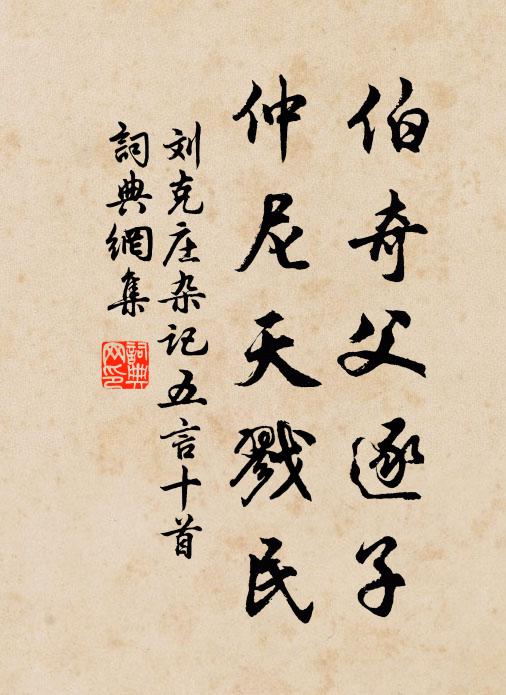 伯奇父逐子
仲尼天戮民
刘克庄杂记五言十首
詞典網集
詞典网印